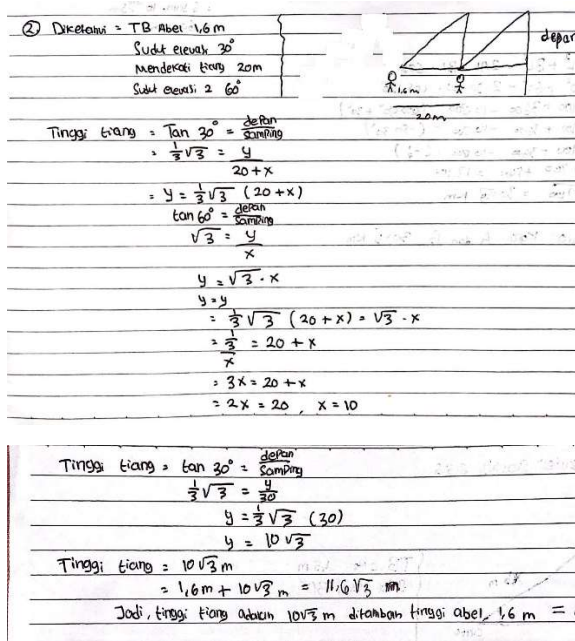 ② Diketahui = TB Abel 1,6 m
Sudut elevasi 30°
Mendekati tiang 20m
Sudut elevasi 2 60°
depan
1,6 m
20m
Tinggi tiang = Tan 30° = depan/samping
= 1/3 √3 = y/(20+x)
= y = 1/3 √3 (20+x)
tan 60° = depan/samping
√3 = y/x
y = √3 . x
y = y
= 1/3 √3 (20+x) = √3 . x
= 1/3/x = 20 + x
= 3x = 20 + x
= 2x = 20, x = 10
Tinggi tiang = tan 30° = depan/samping
1/3 √3 = y/30
y = 1/3 √3 (30)
y = 10 √3
Tinggi tiang = 10√3 m
= 1,6 m + 10√3 m = 11,6 √3 m
Jadi, tinggi tiang adalah 10√3 m ditambah tinggi abel 1,6 m =